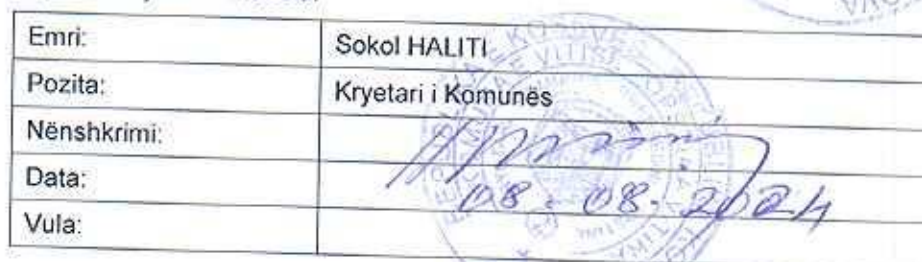 Emri: Sokol HALITI
Pozita: Kryetari i Komunës
Nënshkrimi:
Data: 08-08-2024
Vula: